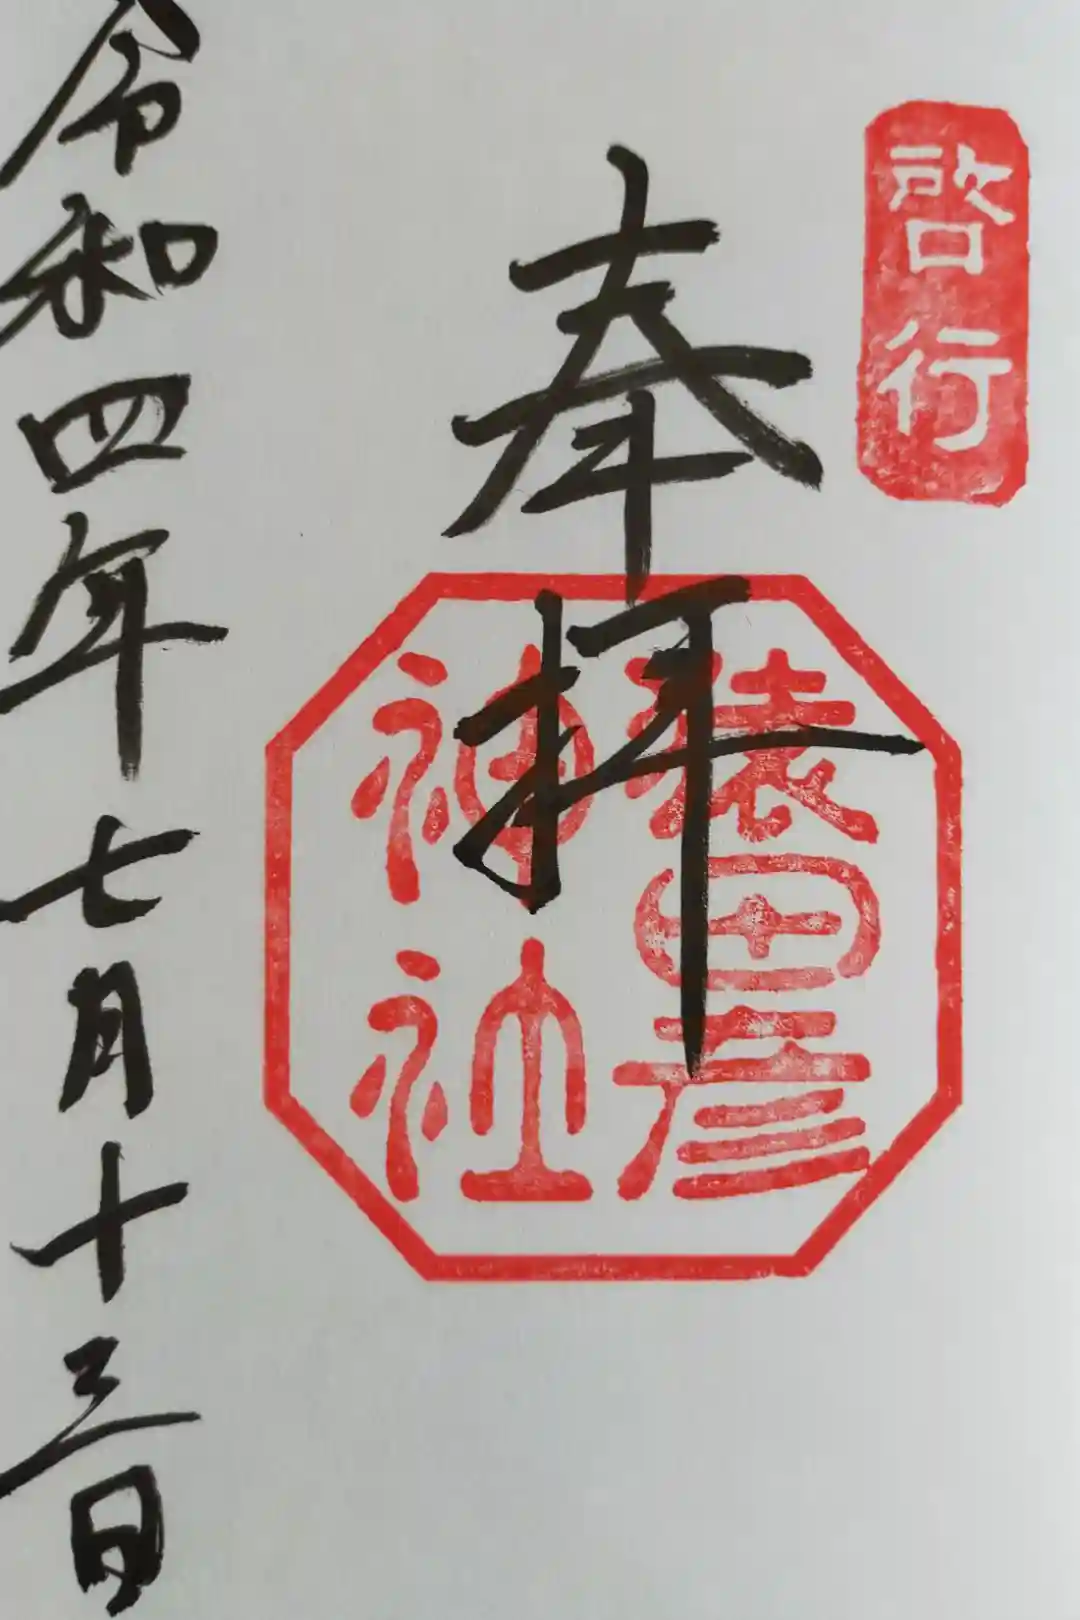 啓行
奉拝
猿田彦
神社
令和四年七月十三日